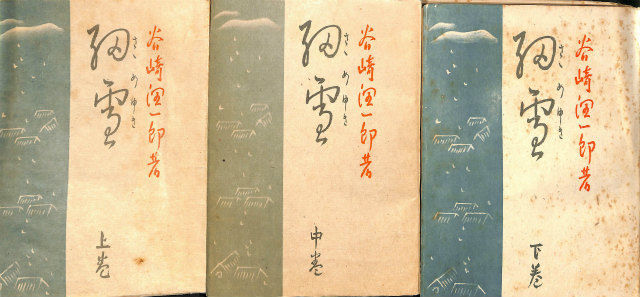 谷崎潤一郎著
細雪
さゝめゆき
上巻
谷崎潤一郎著
細雪
さゝめゆき
中巻
谷崎潤一郎著
細雪
さゝめゆき
下巻